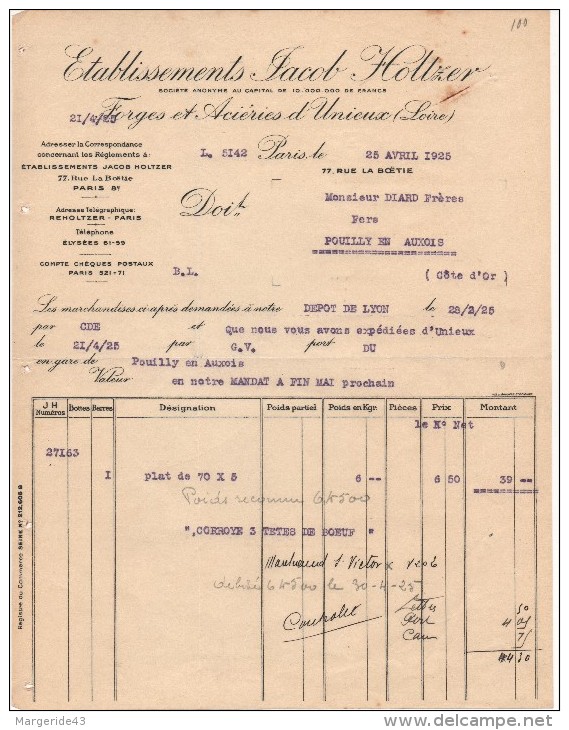 100
Etablissements Jacob Holtzer
SOCIÉTÉ ANONYME AU CAPITAL DE 10.000.000 DE FRANCS
21/4/25
Forges et Aciéries d'Unieux (Loire)
Adresser la Correspondance
concernant les Réglements à:
ÉTABLISSEMENTS JACOB HOLTZER
77, Rue La Boëtie
PARIS 8e
L. 5142 Paris, le 25 AVRIL 1925
77, RUE LA BOËTIE
Adresse Télégraphique:
REHOLTZER - PARIS
Téléphone
ÉLYSÉES 61-59
COMPTE CHÈQUES POSTAUX
PARIS 521-71
Doit
Monsieur DIARD Frères
Fers
POUILLY EN AUXOIS
( Côte d'Or )
B.L.
Les marchandises ci-après demandées à notre DEPOT DE LYON le 28/2/25
par CDE et Que nous vous avons expédiées d'Unieux
le 21/4/25 par G.V. port DU
en gare de Pouilly en Auxois
Valeur en notre MANDAT A FIN MAI prochain
J H Numéros Bottes Barres Désignation Poids partiel Poids en Kgr. Pièces Prix Montant
le K° Net
27163
I plat de 70 X 5 6 -- 6 50 39 --
Poids reconnu 6K500
",CORROYE 3 TETES DE BOEUF "
St Victor x 1206
6K500 le 30-4-25
50
4 05
75
44 30
Registre du Commerce SEINE N° 212.605 B
Margeride43
www.delcampe.net